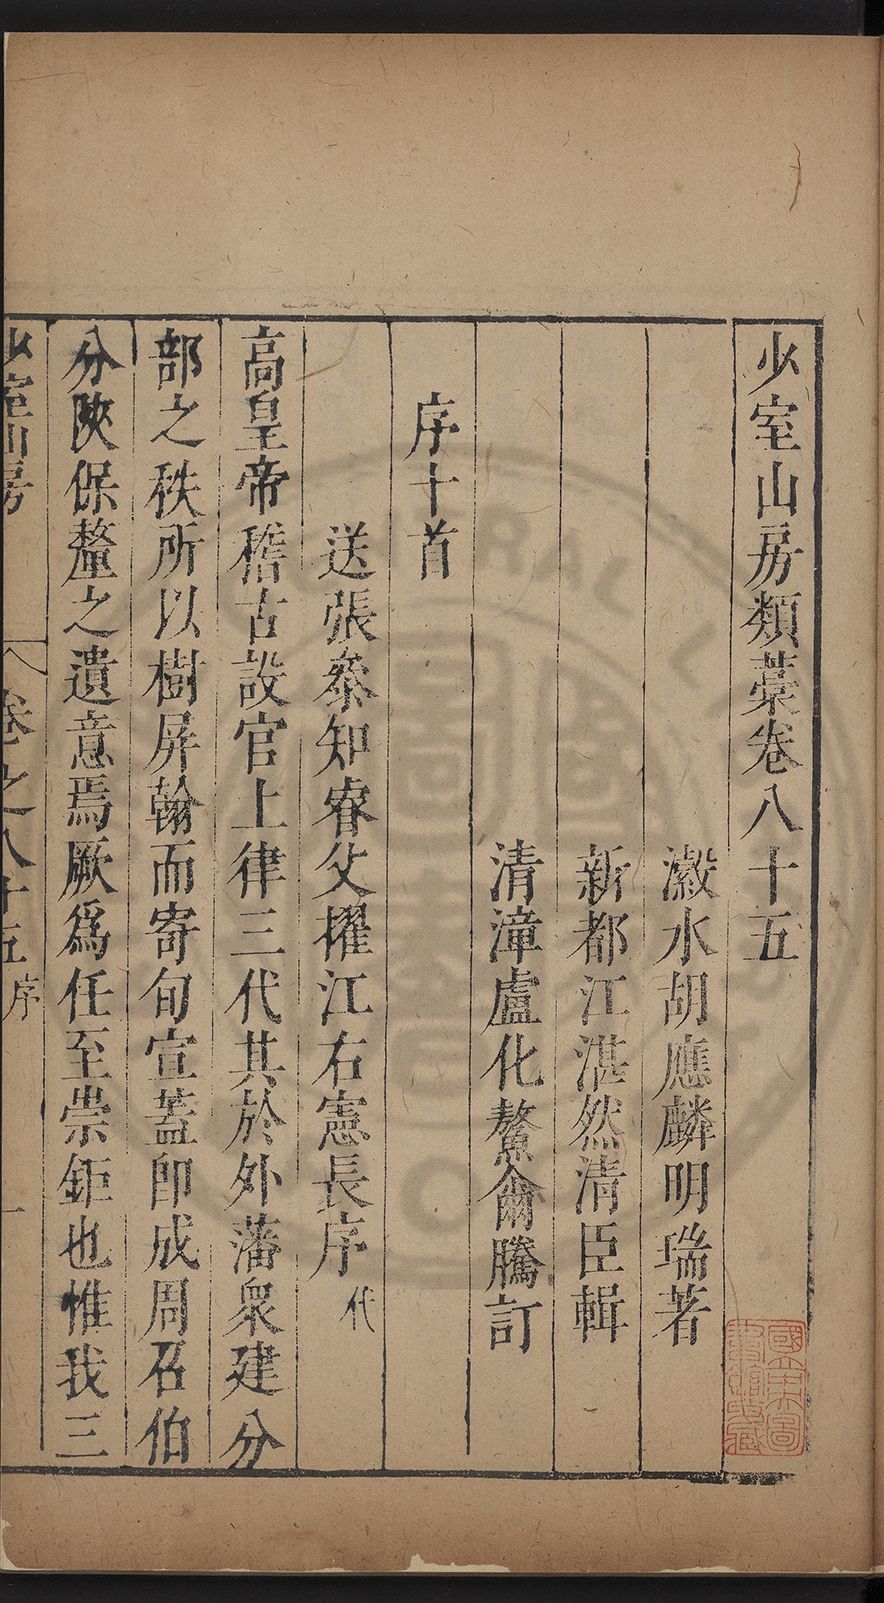 少室山房類藁卷八十五
瀔水胡應麟明瑞著
新都江湛然清臣輯
清漳盧化鰲爾騰訂
序十首
送張叅知睿父擢江右憲長序 代
高皇帝稽古設官上律三代其於外藩衆建分
部之秩所以樹屏翰而寄旬宣蓋卽成周召伯
分陜保釐之遺意焉厥爲任至崇鉅也惟我三
少室山房 卷之八十五 序 一
國立中央圖書館收藏